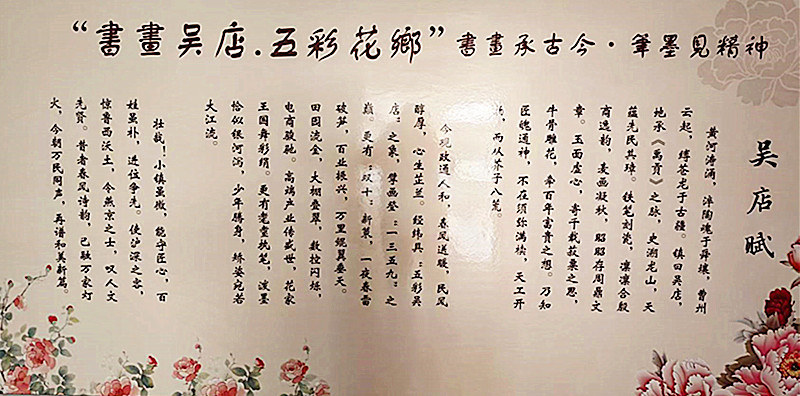 “書畫吴店.五彩花鄉”書畫承古今·筆墨見精神
吴店赋
黄河涛涌，淬陶魂于舜壤，曹州
云起，缚苍龙于古疆。镇曰吴店，
地承《禹贡》之脉，史溯龙山，天
蕴先民共璋。铁笔刻瓷，凛凛合殷
商逸韵，麦画凝秋，昭昭存周鼎文
章。玉面虚心，寄千载菽粟之思，
牛骨雕花，牵百年富贵之想。乃知
匠魄通神，不在须弥满椟，天工开
，而从芥子八笔。
今观政通人和，春风送暖，民风
醇厚，心生芷兰。经纬具：五彩吴
店：之象，擘画登：一三五九：之
巅。更有：双十：新策，一夜春雷
破笋，百业振兴，万里鲲翼垂天。
田园流金，大棚叠翠，数控闪烁，
电商骏驰。高端产业传盛世，花家
王国舞彩绢。更有耄耋执笔，泼墨
恰似银河泻，少年腾身，矫姿宛若
大江流。
壮哉！小镇虽微，能守匠心，百
姓虽朴，进位争先。使沪深之客，
惊鲁西沃土，令燕京之士，叹人文
先贤。昔者春风诗韵，已融万家灯
火，今朝万民同声，再谱和美新篇。